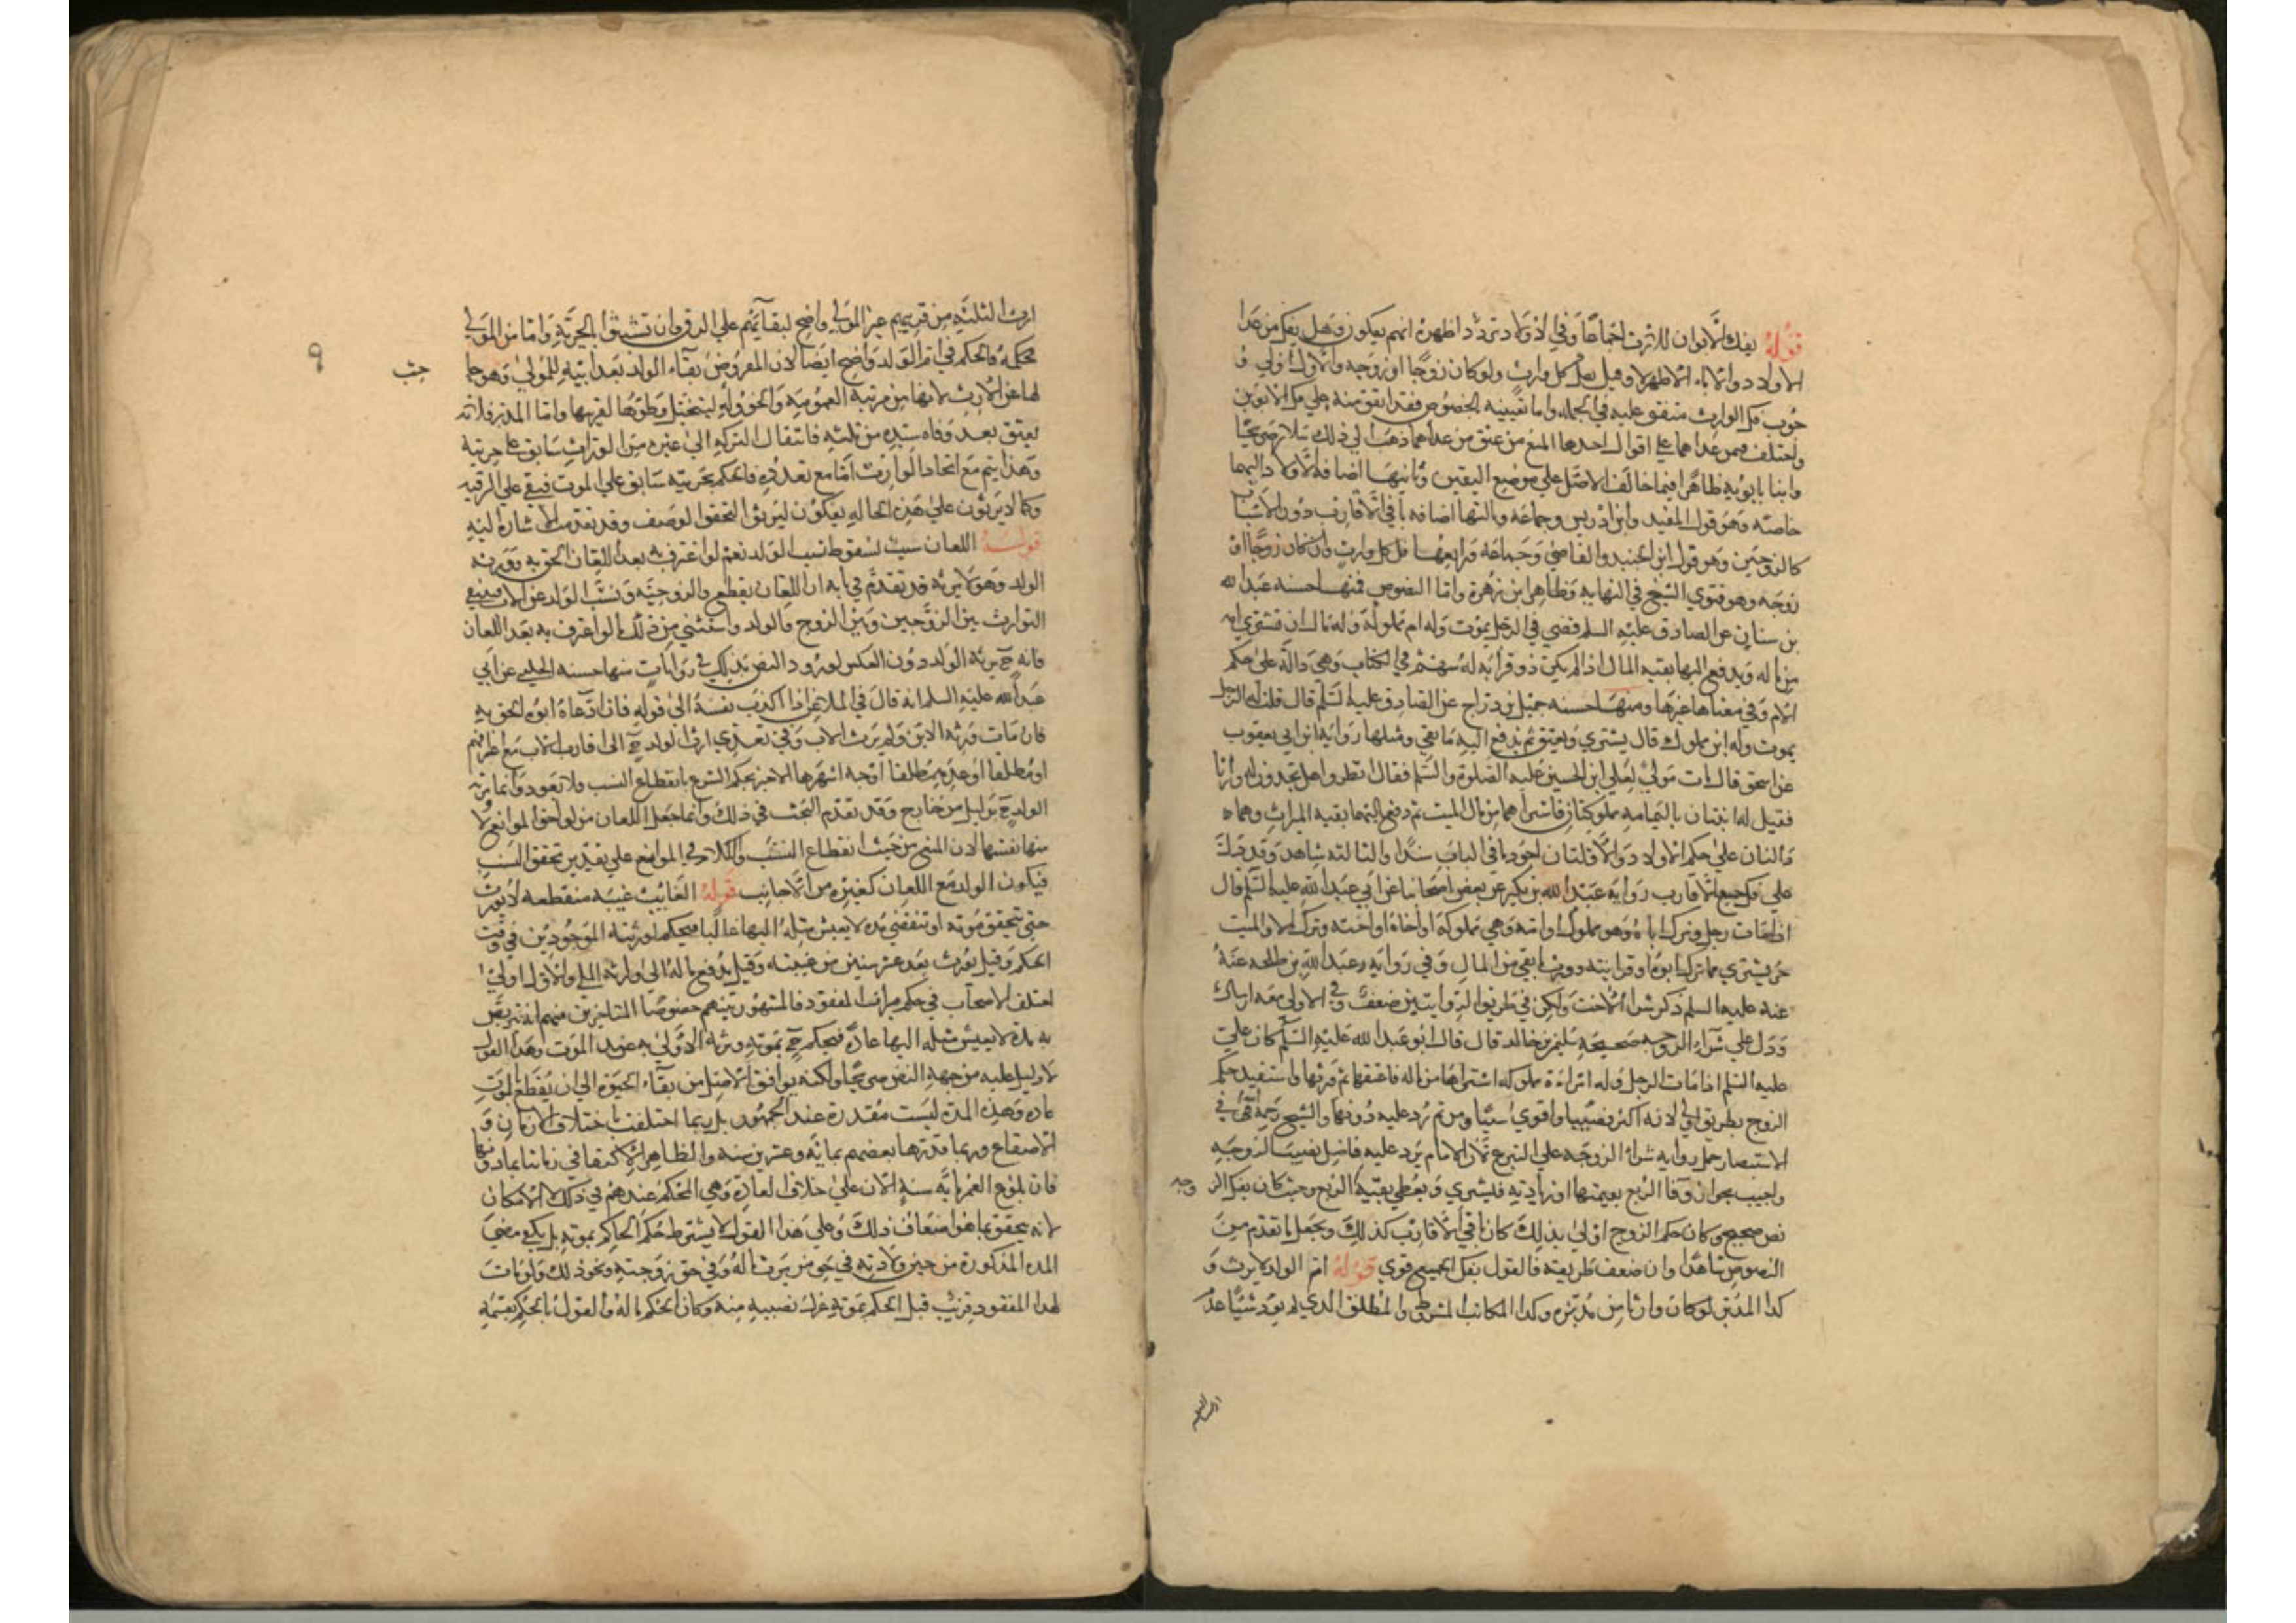 قوله يفك الابوان للارث اجماعا وفي الاولاد تردد اظهره انهم يفكون وهل يفك من عدا
الاولاد والاباء الاظهر لا وقيل يفك كل وارث ولو كان زوجا او زوجه والاول اولى و
جوب فك الوارث متفق عليه في الجمله واما تعيينه بالخصوص فقد اتفق منه على فك الابوين
واختلف فيمن عداهما على اقوال احدها المنع من عتق من عداهما ذهب الى ذلك سلار صريحا
وابنا بابويه ظاهرا فيما خالف الاصل على موضع اليقين وثانيها اضافه الاولاد اليهما
خاصته وهو قول المفيد وابن ادريس وجماعه وثالثها اضافه باقي الاقارب دون الاسباب
كالزوجين وهو قول ابن الجنيد والقاضي وجماعة ورابعها فك كل وارث وان كان زوجا او
زوجه وهو فتوي الشيخ في النهايه وظاهر ابن زهرة واما النصوص فمنها حسنه عبد الله
بن سنان عن الصادق عليه السلم قضي في الرجل يموت وله ام مملوكة وله مال ان تشتري امه
من ماله ويدفع اليها بقيه المال اذا لم يكن ذو قرابه له سهم في الكتاب وهي دالة على حكم
الام وفي معناها غيرها ومنها حسنه جميل بن دراج عن الصادق عليه السلم قال قلت له الرجل
يموت وله ابن مملوك قال يشتري ويعتق ثم يدفع اليه ما بقي ومثلها رواية ابن ابي يعقوب
عن اسحق قال مات مولى لعلي ابن الحسين عليه الصلوة والسلم فقال انظروا هل تجدون له وارثا
فقيل له ابنتان باليمامه مملوكتان فاشتراهما من مال الميت ثم دفع اليهما بقيه الميراث وهما
دالتان على حكم الاولاد والاولتان اجود ما في الباب سندا والثالثه شاهد وقد دلت
على فك جميع الاقارب رواية عبد الله بن بكير عن بعض اصحابنا عن ابي عبد الله عليه السلم قال
اذا مات رجل وترك اباه وهو مملوك او امه وهي مملوكة او اخاه او اخته وترك مالا والميت
حر يشتري مما ترك ابوه او قرابته وورث ما بقي من المال وفي رواية عبد الله بن طلحه عنه
عنه عليه السلم ذكر شرا الاخت ولكن في طريق الروايتين ضعف وفي الاولى معه ارسال
ودل على شراء الزوجه صحيحة سليمن بن خالد قال قال ابو عبد الله عليه السلم كان علي
عليه السلم اذا مات الرجل وله امراءة مملوكه اشتراها من ماله فاعتقها ثم ورثها واستفيد حكم
الزوج بطريق اولى لانه اكثر نصيبا واقوي سببا ومن ثم رد عليه دونها والشيخ رحمه الله في
الاستبصار حمل روايه شراء الزوجه على التبرع لان الامام يرد عليه فاضل نصيب الزوجيه
واجيب بجواز وفا الربع بقيمتها او زيادته فيشري ويعطي بقية الربع وحيث كان بفك الزوجه
نص صحيح وكان حكم الزوج اولى بذلك كان باقي الاقارب كذلك ويجعل ما تقدم من
النصوص شاهدا وان ضعف طريقه فالقول بفك الجميع قوي قوله ام الولد لا يرث و
كذا المدبر لو كان وارثا من مدبره وكذا المكاتب المشروط والمطلق الذي لم يود شيئا عدم
ارث الثلثه من قريبهم غير المولى واضح لبقائهم على الرق وان تشبثوا بالحرية واما من المولى
فحكمه فالحكم في ام الولد واضح ايضا لان المفروض بقاء الولد بعد ابيه للمولى وهو حا
جب
٩
لها عن الارث لانها من مرتبة العمومة والخؤوله
يعتق بعد وفاه سيده من ثلثه فانتقال التركه الى غيره من الوراث سابق على حريته
وهذا يتم مع اتحاد الوارث اما مع تعدده فالحكم بحريته سابق على الموت فبقي على الرقيه
وكما لا يرثون على هذه الحاله يفكون ليرثوا لتحقق الوصف وقد تقدمت الاشاره اليه
قوله اللعان سبب لسقوط نسب الولد نعم لو اعترف به بعد اللعان الحق به وورثه
الولد وهو لا يرثه قد تقدم في بابه ان اللعان يقطع الزوجية ونسب الولد عن الاب فينتفي
التوارث بين الزوجين وبين الزوج والولد واستثني من ذلك ما لو اعترف به بعد اللعان
فانه ح يرثه الولد دون العكس لورود النص بذلك في روايات منها حسنه الحلبي عن ابي
عبد الله عليه السلم انه قال في الملاعن اذا اكذب نفسه الى قوله فان ادعاه ابوه لحق به
فان مات ورثه الابن ولم يرث الاب وفي تعدي ارث الولد ح الى اقارب الاب مع اعترافهم
او مطلقا او عدمه مطلقا اوجه اشهرها الاخير بحكم الشرع بانقطاع النسب فلا يعود وانما يرث
الولد ح بدليل من خارج وقد تقدم البحث في ذلك وانما جعل اللعان من لواحق الموانع لا
منها نفسها لان المنع من حيث انقطاع النسب والكلام في الموانع على تقدير تحقق النسب
فيكون الولد مع اللعان كغيره من الاجانب قوله الغايب غيبه منقطعه لا يورث
حتى يتحقق موته او تنقضي مده لا يعيش مثله اليها غالبا فيحكم لورثته الموجودين في وقت
الحكم وقيل يورث بعد عشر سنين من غيبته وقيل يدفع ماله الى وارثه الملي والاول اولى
اختلف الاصحاب في حكم ميراث المفقود فالمشهور بينهم خصوصا المتاخرين منهم انه يتربص
به مدة لا يعيش مثله اليها عادة فيحكم ح بموته ويرثه الاولى به عند الموت وهذا القول
لا دليل عليه من جهة النص صريحا ولكنه يوافق الاصل من بقاء الحيوة الى ان يقطع بموته
عادة وهذه المدة ليست مقدرة عند الجمهور بل ربما اختلفت باختلاف الازمان و
الاصقاع وربما قدرها بعضهم بمائة وعشرين سنه والظاهر الاكتفا في زماننا بما دونها
فان بلوغ العمر ماية سنة الان على خلاف العادة وهي المحكم عندهم في ذلك لا الامكان
لانه يتحقق بما هو اضعاف ذلك وعلى هذا القول لا يشترط حكم الحاكم بموته بل يكفي مضي
المده المذكورة من حين ولادته في حق من يرث ماله وفي حق زوجته ونحو ذلك ولو مات
لهذا المفقود قريب قبل الحكم بموته عزل نصيبه منه وكان الحكم بماله والقول بالحكم بقسمة